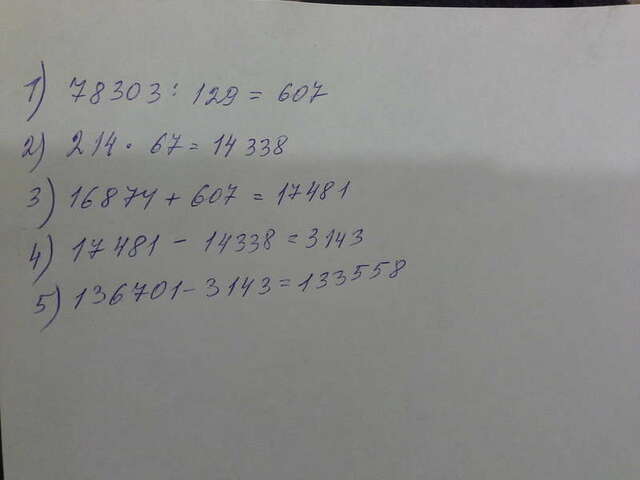 1) 78303 : 129 = 607
2) 214 · 67 = 14338
3) 16874 + 607 = 17481
4) 17481 - 14338 = 3143
5) 136701 - 3143 = 133558